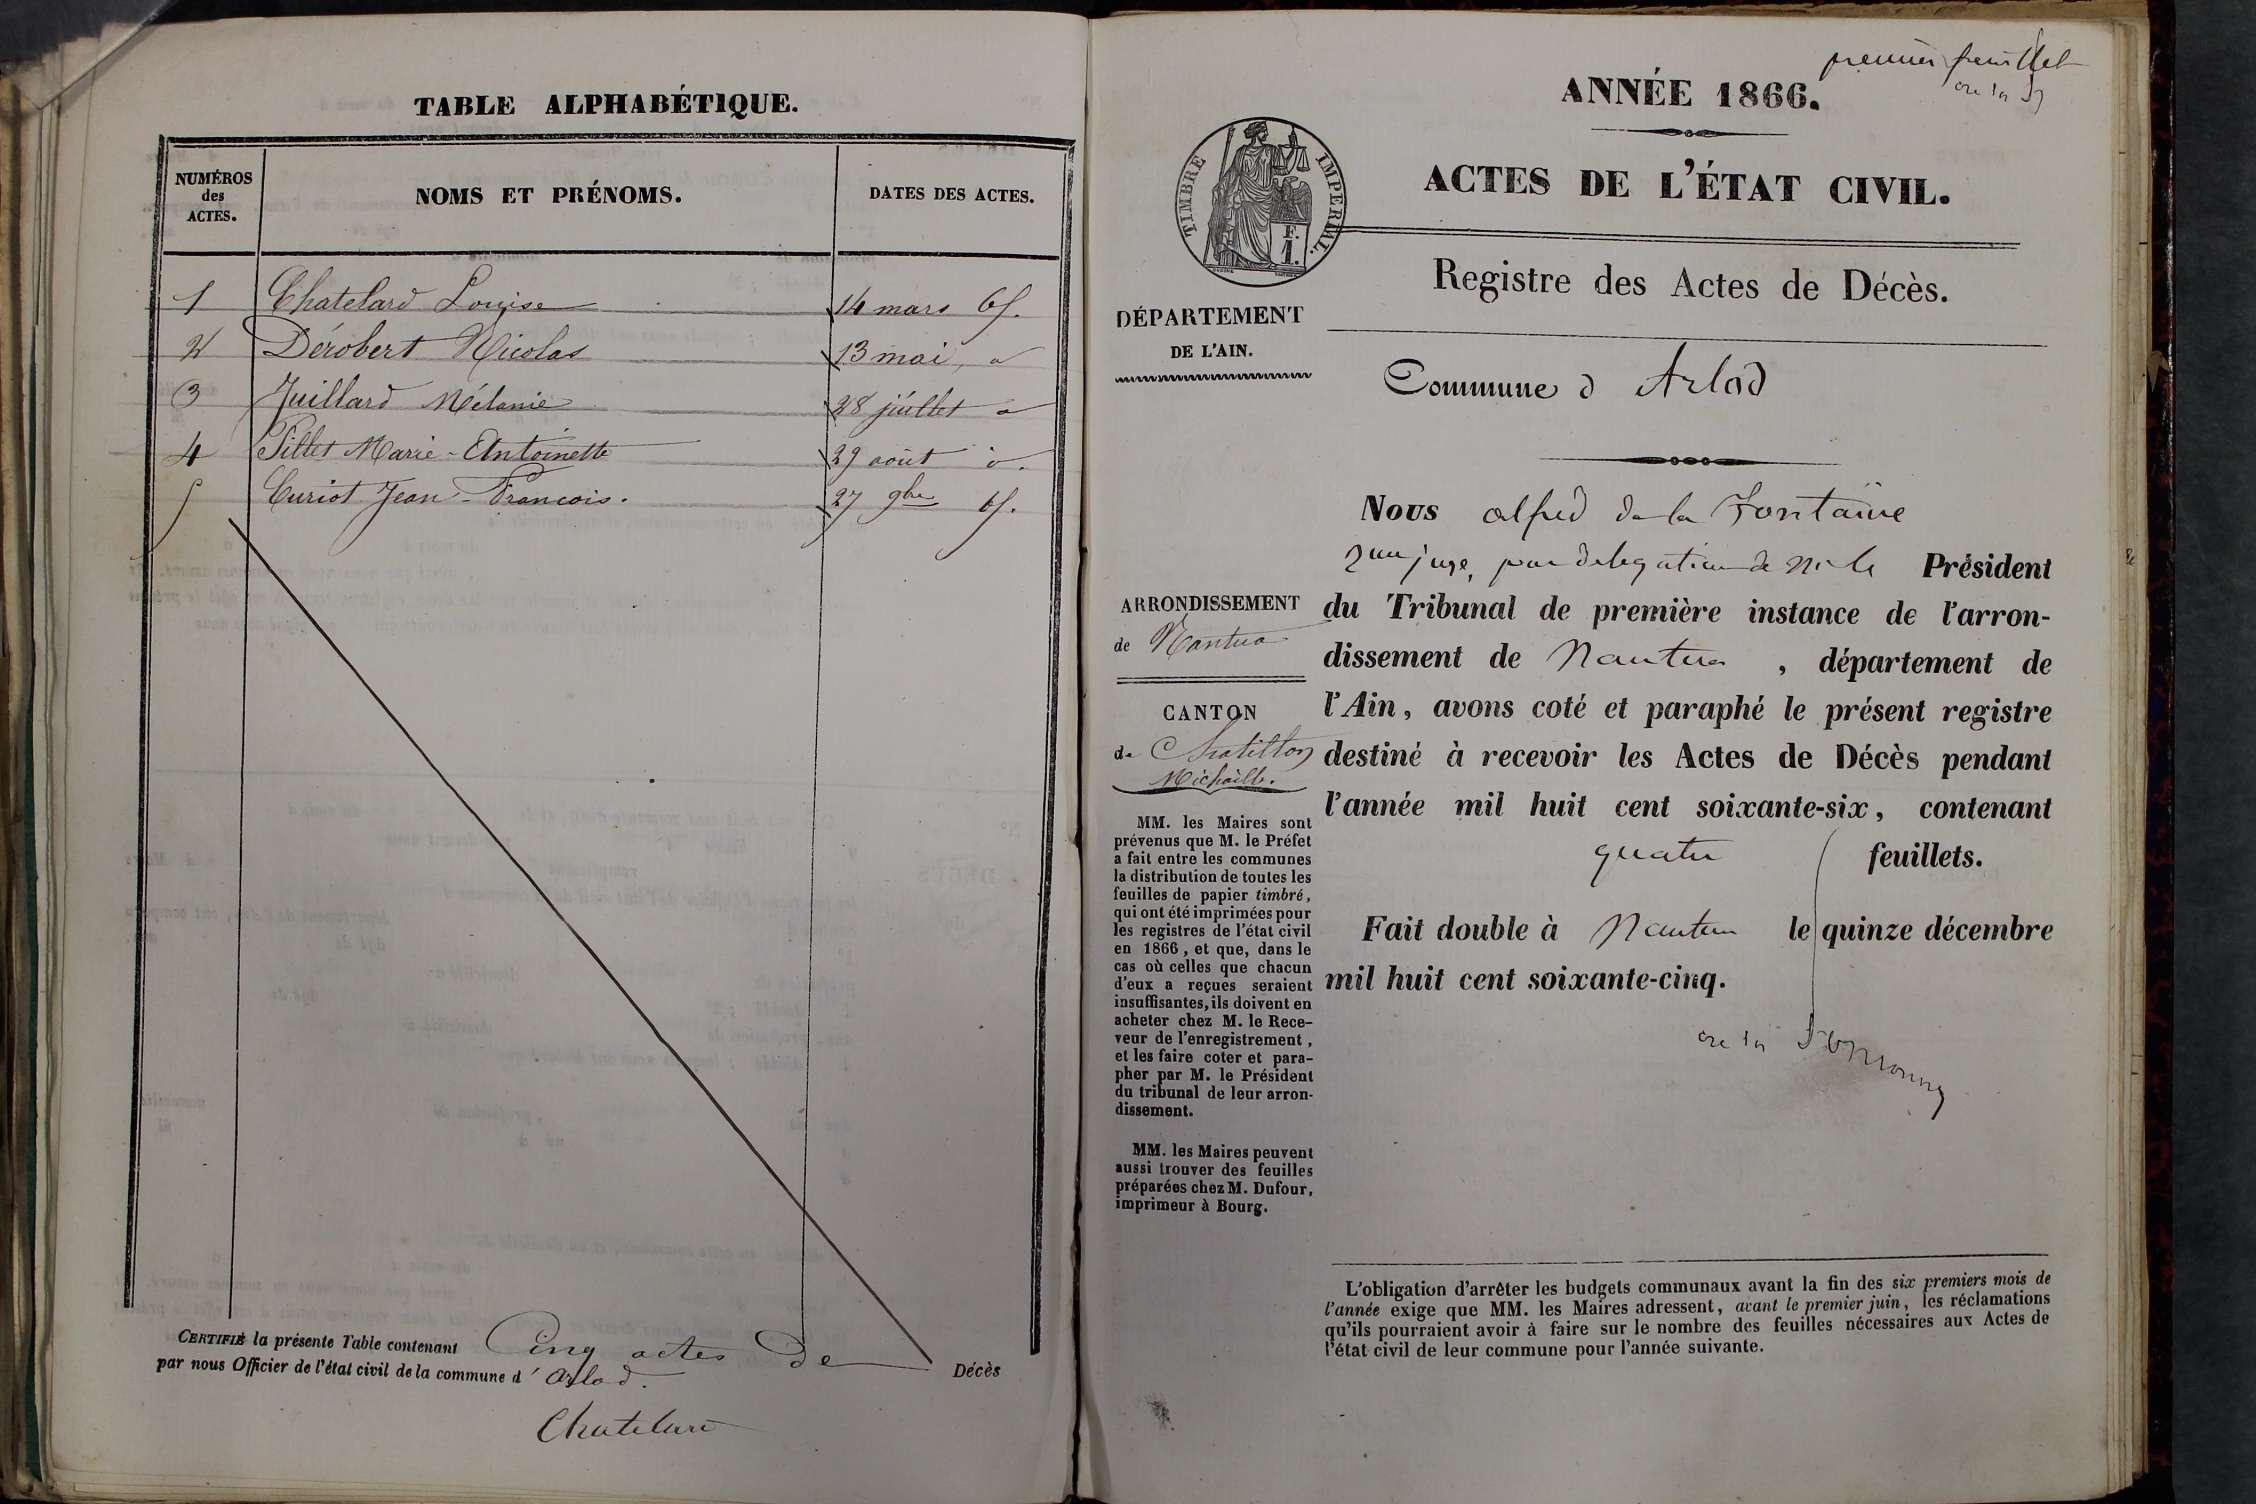 TABLE ALPHABÉTIQUE.
NUMÉROS des ACTES.
NOMS ET PRÉNOMS.
DATES DES ACTES.
1 Chatelard Louise 14 mars 65.
2 Dérobert Nicolas 13 mai
3 Juillard Mélanie 28 juillet
4 Pillet Marie-Antoinette 29 août
5 Curiot Jean-François. 27 9bre 65.
CERTIFIÉ la présente Table contenant Cinq actes de Décès
par nous Officier de l'état civil de la commune d'Arlod.
Chatelard
premier feuillet
ANNÉE 1866.
TIMBRE IMPERIAL.
F.
1.
ACTES DE L'ÉTAT CIVIL.
Registre des Actes de Décès.
DÉPARTEMENT
DE L'AIN.
Commune d Arlod
ARRONDISSEMENT
de Nantua
CANTON
de Chatillon
Michaille.
MM. les Maires sont
prévenus que M. le Préfet
a fait entre les communes
la distribution de toutes les
feuilles de papier timbré,
qui ont été imprimées pour
les registres de l'état civil
en 1866, et que, dans le
cas où celles que chacun
d'eux a reçues seraient
insuffisantes, ils doivent en
acheter chez M. le Rece-
veur de l'enregistrement,
et les faire coter et para-
pher par M. le Président
du tribunal de leur arron-
dissement.
MM. les Maires peuvent
aussi trouver des feuilles
préparées chez M. Dufour,
imprimeur à Bourg.
Nous alfred de la Fontaine
juge, par delegation de Mr le Président
du Tribunal de première instance de l'arron-
dissement de Nantua, département de
l'Ain, avons coté et paraphé le présent registre
destiné à recevoir les Actes de Décès pendant
l'année mil huit cent soixante-six, contenant
quatre feuillets.
Fait double à Nantua le quinze décembre
mil huit cent soixante-cinq.
L'obligation d'arrêter les budgets communaux avant la fin des six premiers mois de
l'année exige que MM. les Maires adressent, avant le premier juin, les réclamations
qu'ils pourraient avoir à faire sur le nombre des feuilles nécessaires aux Actes de
l'état civil de leur commune pour l'année suivante.